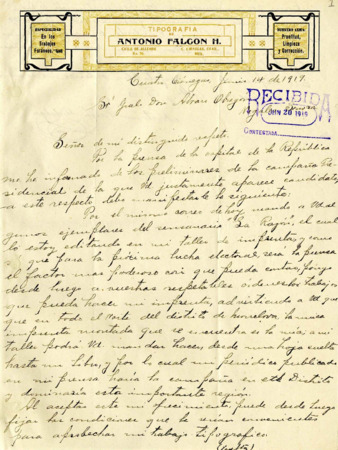 ESPECIALIDAD
En los
Trabajos
Foráneos.
TIPOGRAFIA
DE
ANTONIO FALCON H.
NUESTRO LEMA:
Prontitud,
Limpieza
y Corrección.
Cuatro Ciénegas, Junio 14 de 1919.
Sr. Gral. Don Alvaro Obregón
RECIBIDA
JUN 20 1919
CONTESTADA
Señor de mi distinguido respeto:
Por la prensa de la capital de la República
me he informado de los preliminares de la campaña Pre
sidencial de la que Ud. justamente aparece candidato,
a este respecto debo manifestarle lo siguiente:
Por el mismo correo de hoy mando a Ud. al
gunos ejemplares del semanario "La Razón", el cual
lo estoy editando en mi taller de imprenta, y como
es que para la próxima lucha electoral sera la prensa
el factor mas poderoso con que pueda contar, pongo
desde luego a vuestras respetables ordenes los trabajos
que pueda hacer mi imprenta, advirtiendo a Ud. que
que en todo el Norte del distrito de Monclova la unica
imprenta montada que se encuentra es la mia; a mi
taller podrá Ud. mandar hacer, desde una hoja suelta
hasta un libro, y por lo cual un periódico publicado
en mi prensa haría la campaña en este Distrito
y dominaría esta importante región.
Al aceptar este mi ofrecimiento puede desde luego
fijar las condiciones que le serian convenientes
para aprobechar mi trabajo tipografico.